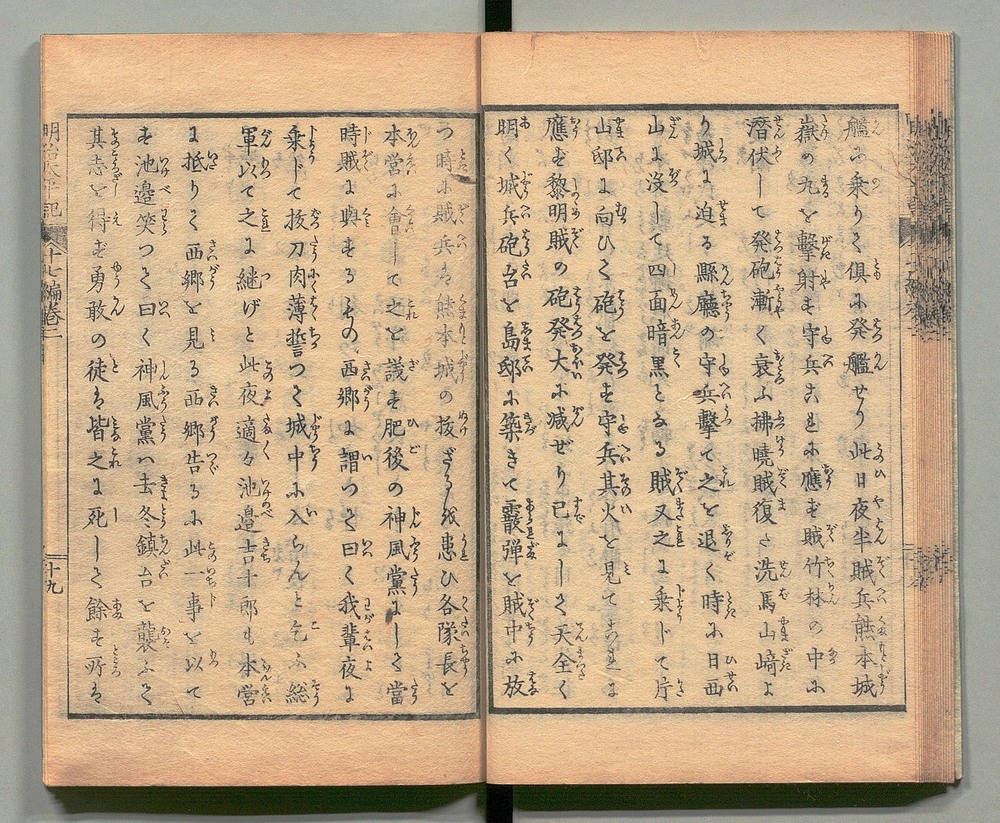 艦に乗りて倶に発艦せり此日夜半賊兵熊本城
嶽の丸を撃射も守兵これに應も賊竹林の中に
潜伏して発砲漸く衰ふ拂曉賊復た洗馬山﨑よ
り城に迫る縣廳の守兵撃て之を退く時に日西
山に没して四面暗黒となる賊又之に乗じて片
山邸に向ひて砲を発も守兵其火を見てこれに
應も黎明賊の砲発大に減ぜり已にして天全く
明く城兵砲台を島邸に築きて霰弾を賊中に放
つ時に賊兵は熊本城の抜ざるを患ひ各隊長を
本営に會して之を議も肥後の神風黨にして當
時賊に與もるもの西郷に謂つて曰く我輩夜に
乗じて抜刀肉薄誓つて城中に入らんと乞ふ総
軍以て之に継げと此夜適々池邉吉十郎も本営
に抵りて西郷を見る西郷告るに此一事を以て
も池邉笑つて曰く神風黨ハ去冬鎮台を襲ふて
其志を得ず勇敢の徒は皆之に死して餘も所は
明治太平記
十七編巻二
十九